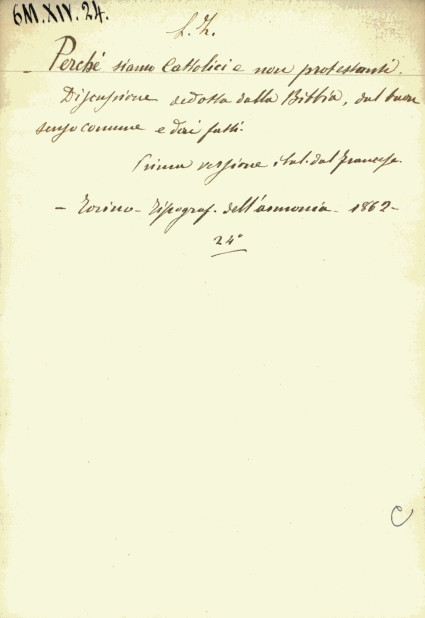 6M.XIV.24.
L. Z.
Perché siamo Cattolici e non protestanti.
Discussione dedotta dalla Bibbia, dal buon
senso comune e dai fatti.
Prima versione ital. dal francese.
- Torino - Tipograf. dell'armonia - 1862 -
24°
C